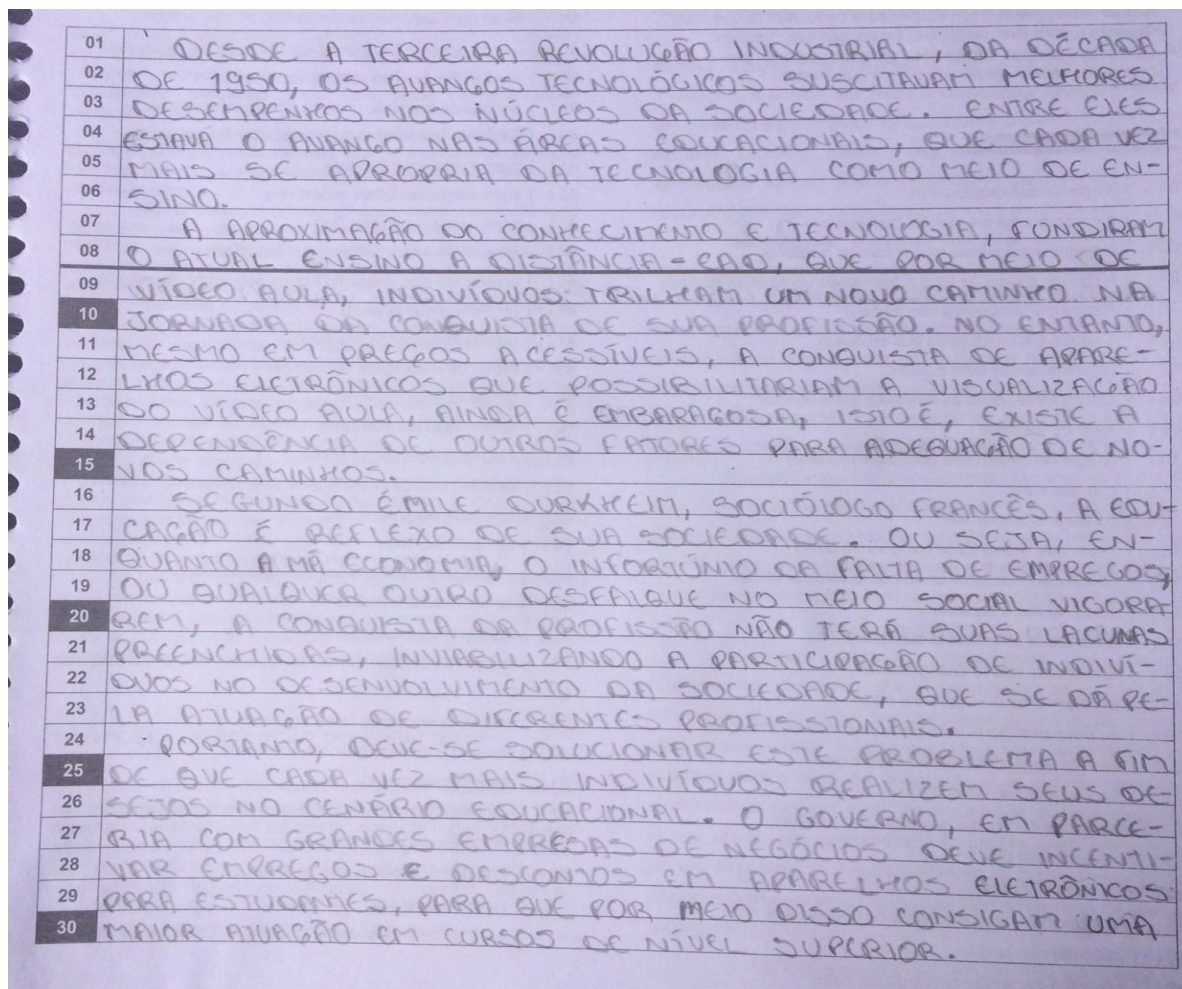 01 DESDE A TERCEIRA REVOLUÇÃO INDUSTRIAL, DA DÉCADA
02 DE 1950, OS AVANÇOS TECNOLÓGICOS SUSCITAVAM MELHORES
03 DESEMPENHOS NOS NÚCLEOS DA SOCIEDADE. ENTRE ELES
04 ESTAVA O AVANÇO NAS ÁREAS EDUCACIONAIS, QUE CADA VEZ
05 MAIS SE APROPRIA DA TECNOLOGIA COMO MEIO DE EN-
06 SINO.
07 A APROXIMAÇÃO DO CONHECIMENTO E TECNOLOGIA, FUNDIRAM
08 O ATUAL ENSINO A DISTÂNCIA - EAD, QUE POR MEIO DE
09 VÍDEO AULA, INDIVÍDUOS TRILHAM UM NOVO CAMINHO NA
10 JORNADA DA CONQUISTA DE SUA PROFISSÃO. NO ENTANTO,
11 MESMO EM PREÇOS ACESSÍVEIS, A CONQUISTA DE APARE-
12 LHOS ELETRÔNICOS QUE POSSIBILITARIAM A VISUALIZAÇÃO
13 DO VÍDEO AULA, AINDA É EMBARAÇOSA, ISTO É, EXISTE A
14 DEPENDÊNCIA DE OUTROS FATORES PARA ADEQUAÇÃO DE NO-
15 VOS CAMINHOS.
16 SEGUNDO ÉMILE DURKHEIM, SOCIÓLOGO FRANCÊS, A EDU-
17 CAÇÃO É REFLEXO DE SUA SOCIEDADE. OU SEJA, EN-
18 QUANTO A MÁ ECONOMIA, O INFORTÚNIO DA FALTA DE EMPREGOS,
19 OU QUALQUER OUTRO DESFALQUE NO MEIO SOCIAL VIGORA
20 REM, A CONQUISTA DA PROFISSÃO NÃO TERÁ SUAS LACUNAS
21 PREENCHIDAS, INVIABILIZANDO A PARTICIPAÇÃO DE INDIVÍ-
22 DUOS NO DESENVOLVIMENTO DA SOCIEDADE, QUE SE DÁ PE-
23 LA ATUAÇÃO DE DIFERENTES PROFISSIONAIS.
24 PORTANTO, DEVE-SE SOLUCIONAR ESTE PROBLEMA A FIM
25 DE QUE CADA VEZ MAIS INDIVÍDUOS REALIZEM SEUS DE-
26 SEJOS NO CENÁRIO EDUCACIONAL. O GOVERNO, EM PARCE-
27 RIA COM GRANDES EMPRESAS DE NEGÓCIOS DEVE INCENTI-
28 VAR EMPREGOS E DESCONTOS EM APARELHOS ELETRÔNICOS
29 PARA ESTUDANTES, PARA QUE POR MEIO DISSO CONSIGAM UMA
30 MAIOR ATUAÇÃO EM CURSOS DE NÍVEL SUPERIOR.